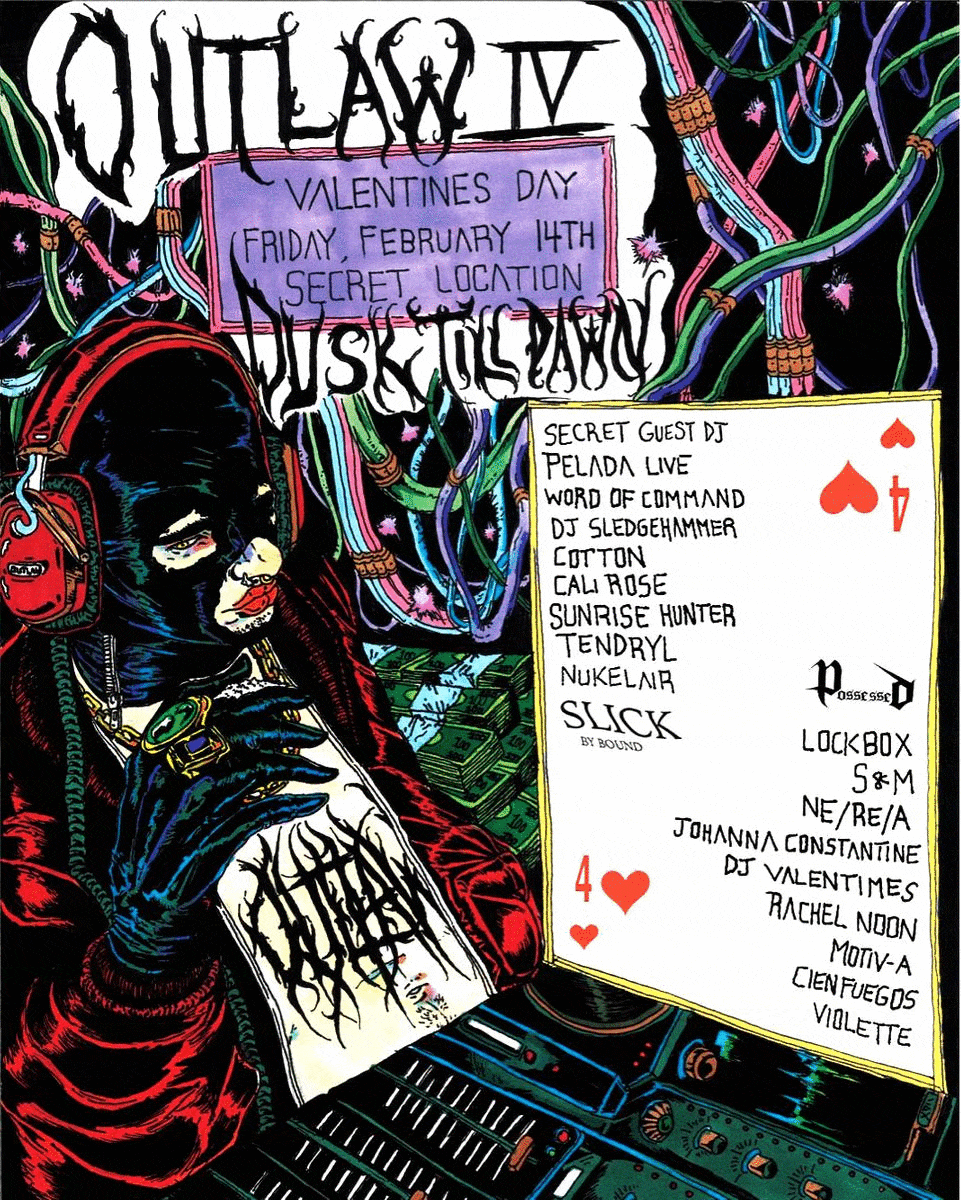 OUTLAW IV
VALENTINES DAY
FRIDAY, FEBRUARY 14TH
SECRET LOCATION
DUSK TILL DAWN
SECRET GUEST DJ
PELADA LIVE
WORD OF COMMAND
DJ SLEDGEHAMMER
COTTON
CALI ROSE
SUNRISE HUNTER
TENDRYL
NUKELAIR
SLICK
BY BOUND
4
PossesseD
LOCKBOX
S&M
NE/RE/A
JOHANNA CONSTANTINE
DJ VALENTIMES
RACHEL NOON
MOTIV-A
CIENFUEGOS
VIOLETTE
4
OUTLAW
OUTLAW
100